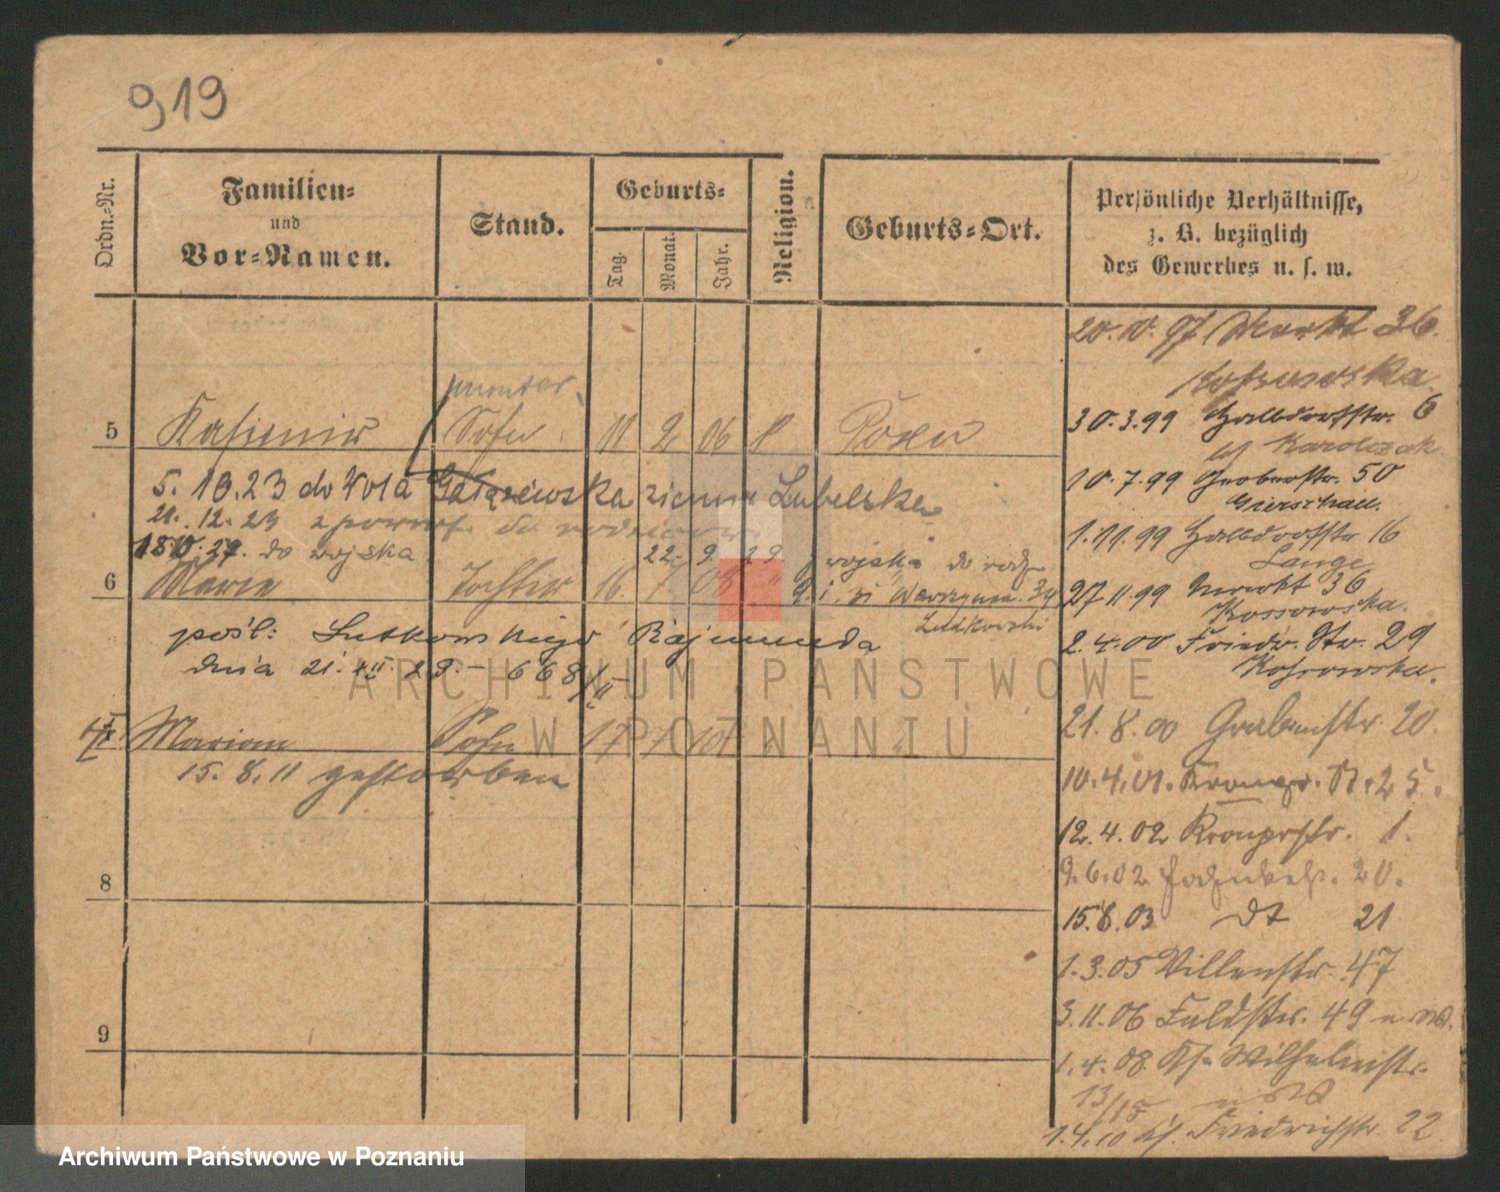 919
Ordn.-Nr.
Familien-
und
Vor-Namen.
Stand.
Geburts-
Tag.
Monat.
Jahr.
Religion.
Geburts-Ort.
Persönliche Verhältnisse,
z. B. bezüglich
des Gewerbes u. s. w.
20.10.97 Markt 36.
Kossowska
30.3.99 Halbdorfstr. 6
bei Karolczak
10.7.99 Grabenstr. 50
1.11.99 Halbdorfstr 16
Lange
27 11.99 Markt 36
Kossowska.
2.4.00 Friedr. Str. 29
Kossowska.
21.8.00 Grabenstr. 20.
10.4.01. Kronpr. St. 25.
12.4.02 Kronprstr. 1.
9.6.02 20.
15.8.03 dt 21
1.3.05 Villenstr. 47
3.11.06 Feldstr. 49
1.4.08 Ks. Wilhelmstr.
13/15
1.4.10 Friedrichstr. 22
monter
5 Kasimir Sohn 11 2 06 Posen
5. 10.23 do Wola ziemia Lubelska
21. 12. 23 z powrot. do rodziców
18.10.27. do wojska 22. 9. 29. z wojska do rodz
6 Marie Tochter 16. 7. 08 " "
Wawrzyńca 34
Lutkowski
pośl: Lutkowskiego Rajmunda
dnia 21. XII 29. - 668/II
Marian Sohn 17 1 10 "
15. 8. 11 gestorben
8
9
ARCHIWUM PAŃSTWOWE
W POZNANIU
Archiwum Państwowe w Poznaniu